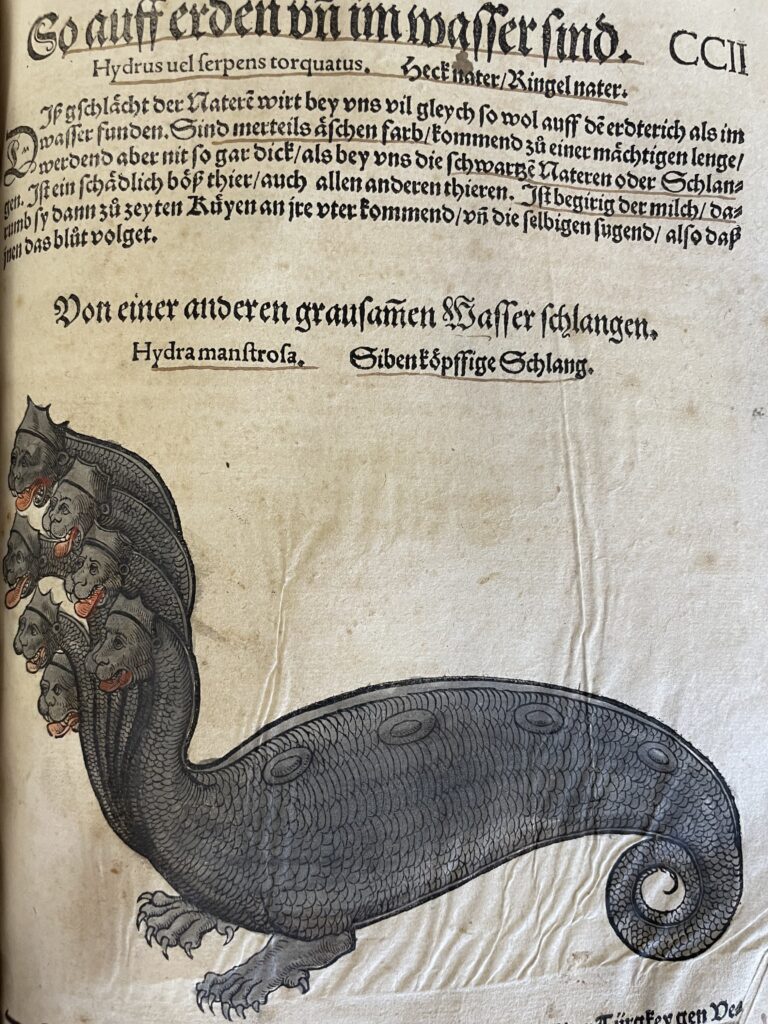 So auff erden vñ im wasser sind. CCII
Hydrus uel serpens torquatus. Heck nater/Ringel nater.
Diß gschlächt der Naterẽ wirt bey vns vil gleych so wol auff dẽ erdterich als im
wasser funden. Sind merteils äschen farb/kommend zů einer mächtigen lenge/
werdend aber nit so gar dick/als bey vns die schwartzẽ Nateren oder Schlan-
gen. Ist ein schädlich böß thier/auch allen anderen thieren. Ist begirig der milch/da-
rumb sy dann zů zeyten Küyen an jre vter kommend/vñ die selbigen sugend/ also daß
jnen das blůt volget.
Von einer anderen grausam̃en Wasser schlangen.
Hydra manstrosa. Sibenköpffige Schlang.
Türgkey gen Ve-